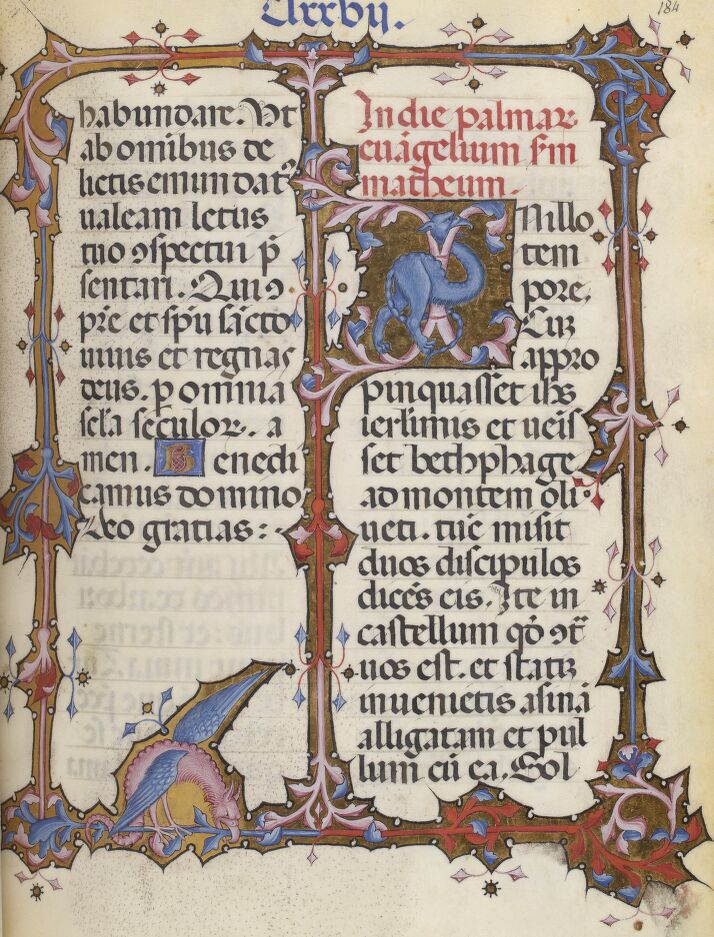 Clxxvij.
184
habundare. Vt
ab omibus de
lictis emundatꝰ
ualeam letus
tuo ꝯspectui p̃
sentari. Qui ꝯ
pr̃e et sp̃u sãcto
uiuis et regnas
deus. p omnia
scl̃a seculoꝝ. a
men. Benedi
camus domino
Deo gratias:
In die palmaꝝ
euãgelium scꝫm
matheum.
In illo
tem
pore.
Cuꝫ
appro
pinquasset ihs
ierlimis et ueis
set bethphage
ad montem oli
ueti. tũc misit
duos discipulos
dicẽs eis. Ite in
castellum qd̃ ꝯt̃
uos est. et statiꝫ
inuenietis asinã
alligatam et pul
lum cũ ea. Sol